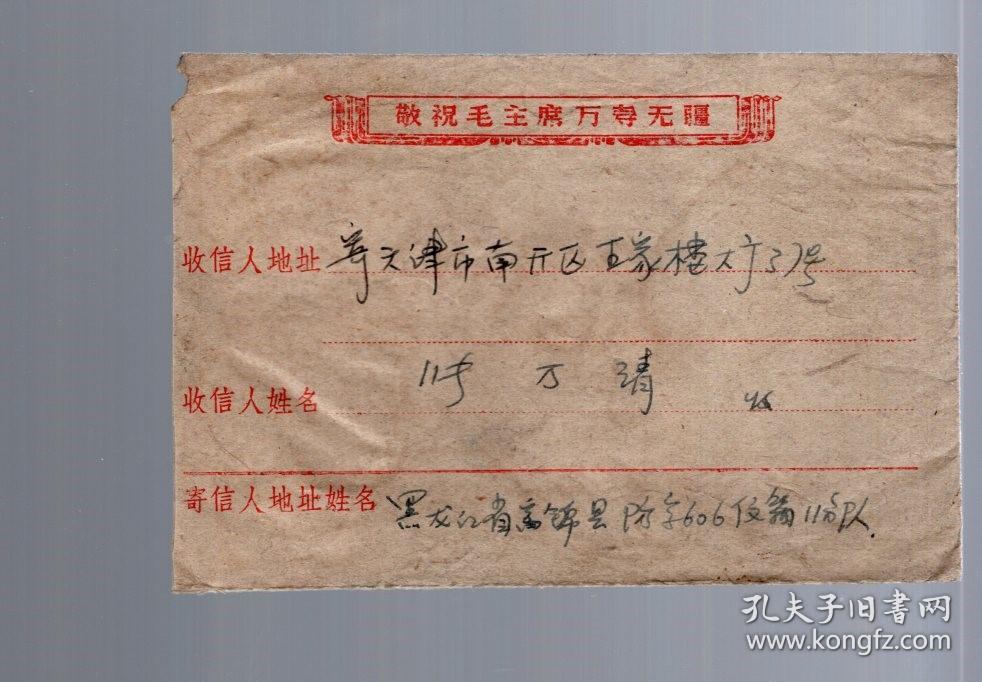 敬祝毛主席万寿无疆
收信人地址 寄天津市南开区王家楼大 37号
收信人姓名 万 靖 收
寄信人地址姓名 黑龙江省富锦县 防字606信箱11分队
孔夫子旧书网
www.kongfz.com